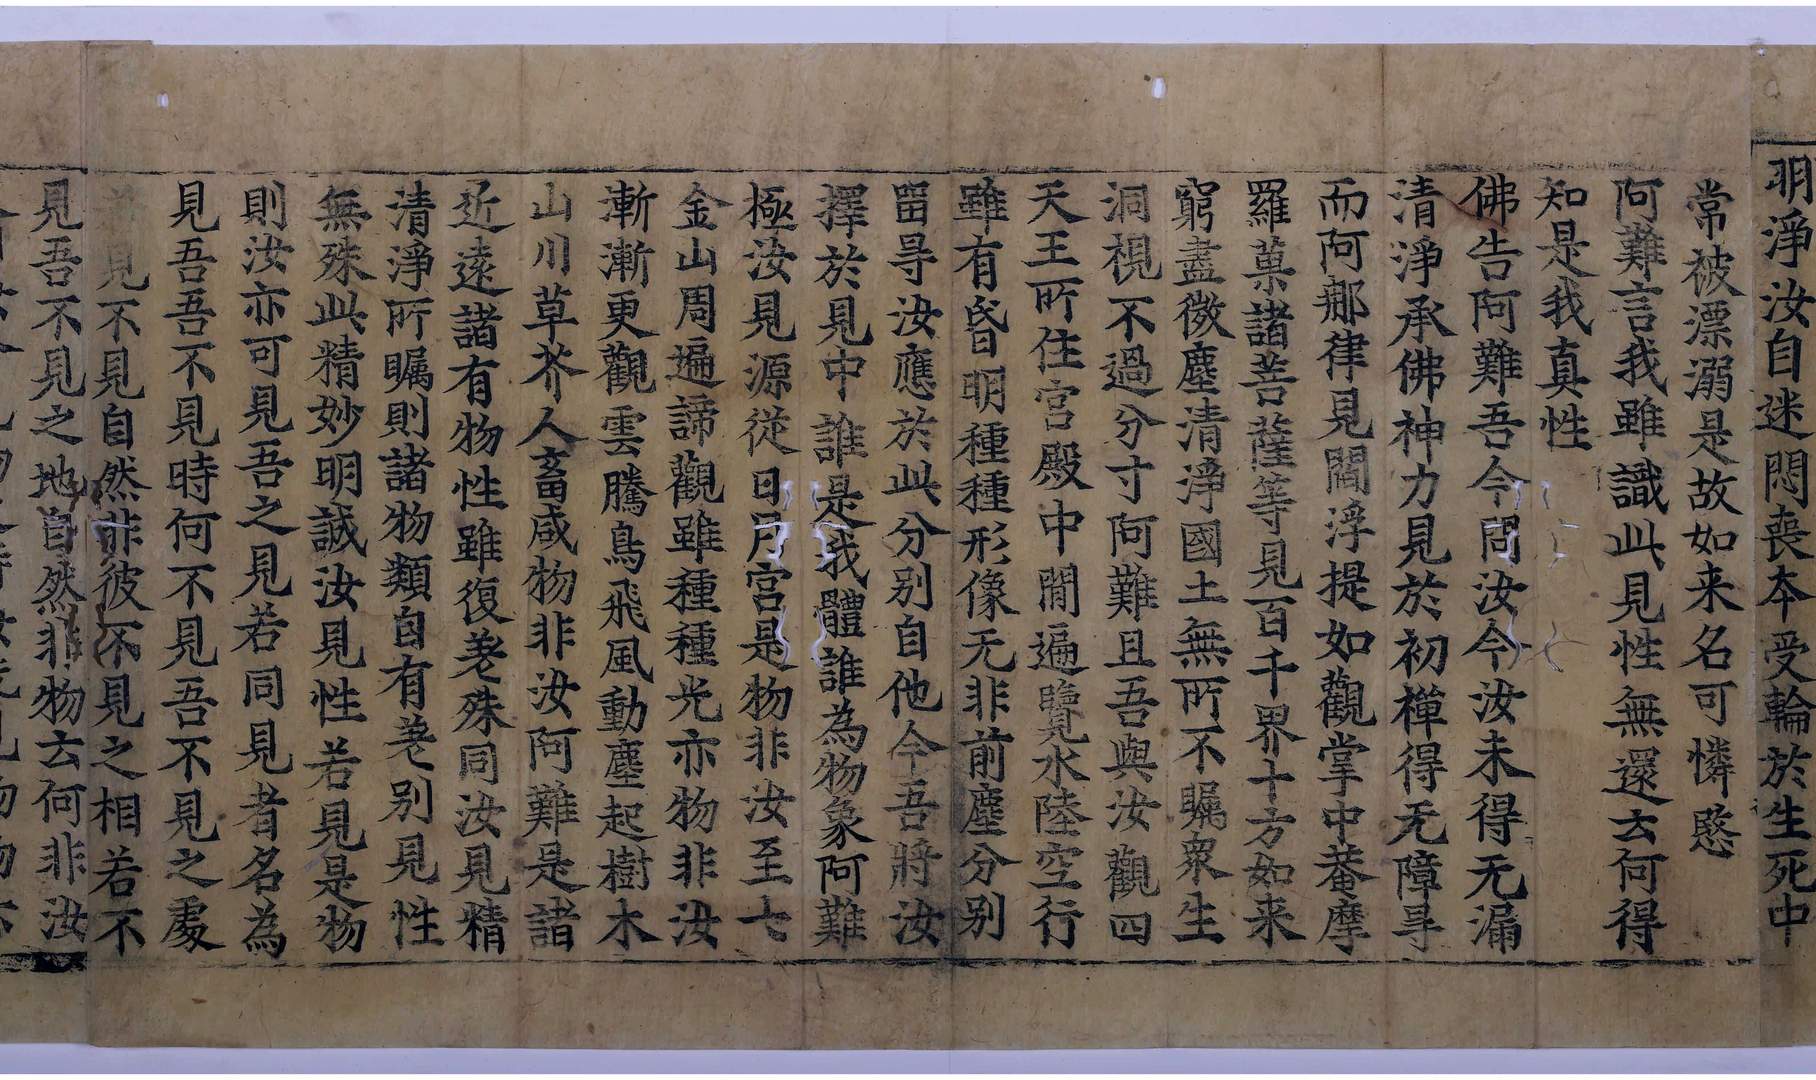 明淨汝自迷悶喪本受輪於生死中
常被漂溺是故如来名可憐愍
阿難言我雖識此見性無還云何得
知是我真性
佛告阿難吾今問汝今汝未得无漏
清淨承佛神力見於初禪得无障㝵
而阿那律見閻浮提如觀掌中菴摩
羅菓諸菩薩等見百千界十方如来
窮盡微塵清淨國土無所不矚衆生
洞視不過分寸阿難且吾與汝觀四
天王所住宮殿中間遍覽水陸空行
雖有昏明種種形像无非前塵分別
留㝵汝應於此分別自他今吾將汝
擇於見中誰是我體誰為物象阿難
極汝見源從日月宮是物非汝至七
金山周遍諦觀雖種種光亦物非汝
漸漸更觀雲騰鳥飛風動塵起樹木
山川草芥人畜咸物非汝阿難是諸
近遠諸有物性雖復差殊同汝見精
清淨所矚則諸物類自有差别見性
無殊此精妙明誠汝見性若見是物
則汝亦可見吾之見若同見者名為
見吾吾不見時何不見吾不見之處
若見不見自然非彼不見之相若不
見吾不見之地自然非物云何非汝